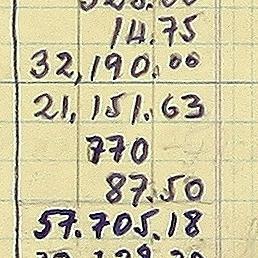 14.75
32,190.00
21,151.63
770
87.50
57.705.18